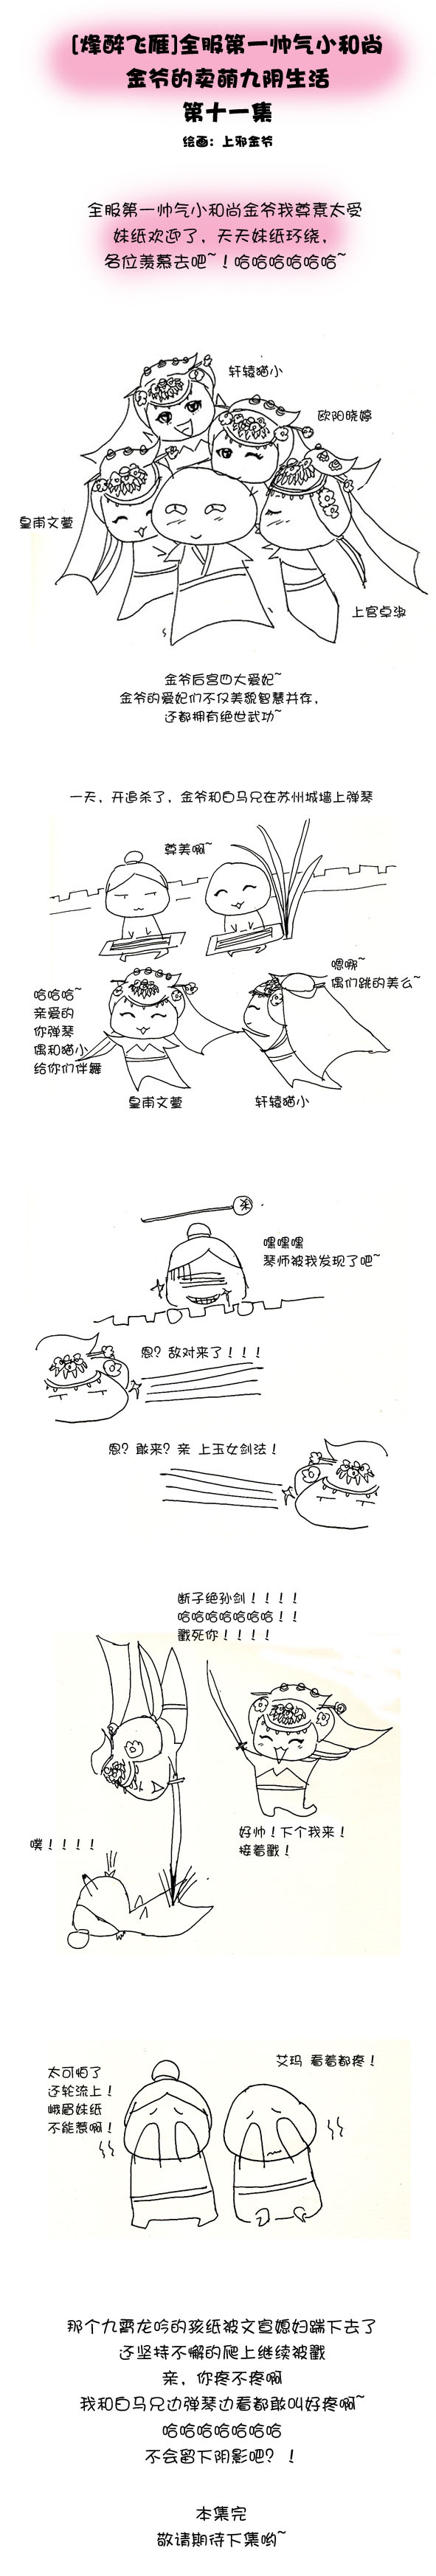 [烽醉飞雁]全服第一帅气小和尚
金爷的卖萌九阴生活
第十一集
绘画：上邪金爷
全服第一帅气小和尚金爷我尊素太受
妹纸欢迎了，天天妹纸环绕，
各位羡慕去吧~！哈哈哈哈哈哈~
轩辕猫小
欧阳晓婷
皇甫文萱
上官卓淑
金爷后宫四大爱妃~
金爷的爱妃们不仅美貌智慧并存，
还都拥有绝世武功~
一天，开追杀了，金爷和白马兄在苏州城墙上弹琴
尊美啊~
嗯哪~
偶们跳的美么~
哈哈哈~
亲爱的
你弹琴
偶和猫小
给你们伴舞
皇甫文萱
轩辕猫小
杀
嘿嘿嘿
琴师被我发现了吧~
恩？敌对来了！！！
恩？敢来？亲 上玉女剑法！
断子绝孙剑！！！！
哈哈哈哈哈哈哈！！
戳死你！！！！
好帅！下个我来！
接着戳！
噗！！！！
艾玛 看着都疼！
太可怕了
还轮流上！
峨眉妹纸
不能惹啊！
那个九霄龙吟的孩纸被文宣媳妇踹下去了
还坚持不懈的爬上继续被戳
亲，你疼不疼啊
我和白马兄边弹琴边看都敢叫好疼啊~
哈哈哈哈哈哈哈
不会留下阴影吧？！
本集完
敬请期待下集哟~